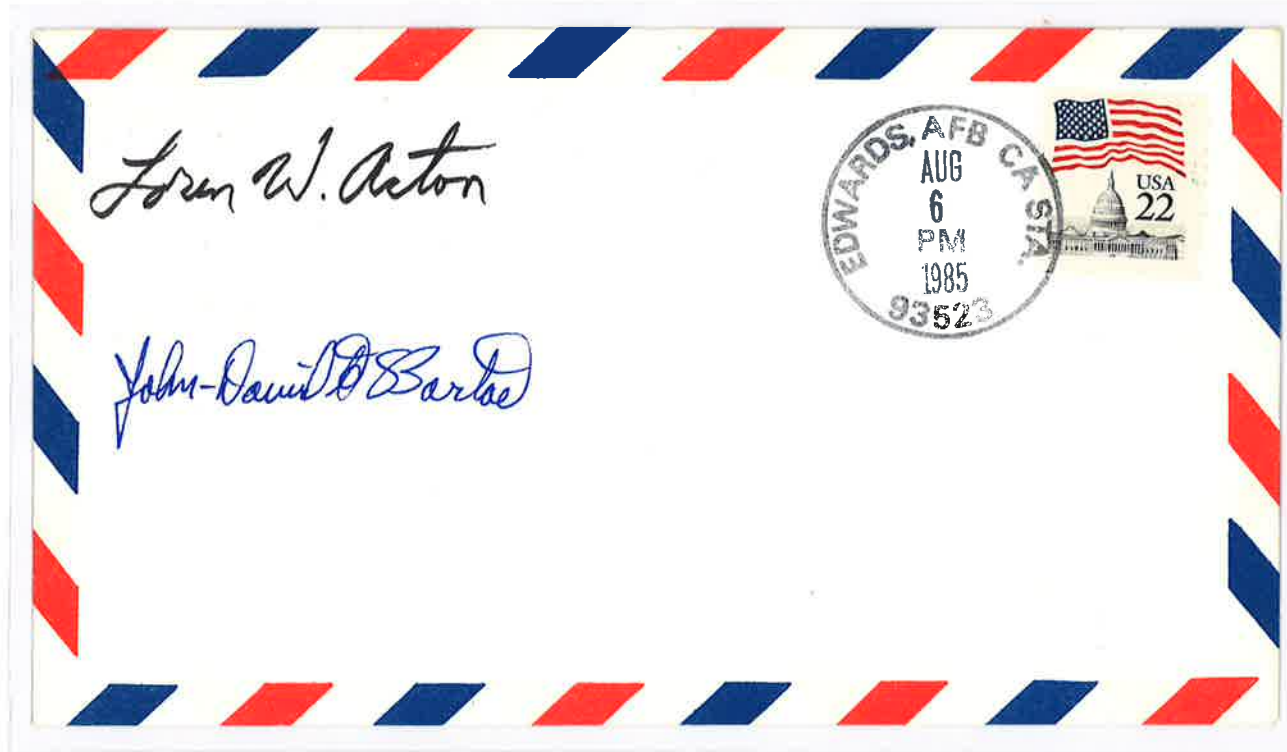 Loren W. Acton
John-David F. Bartoe
EDWARDS, AFB CA STA.
AUG
6
PM
1985
93523
USA
22